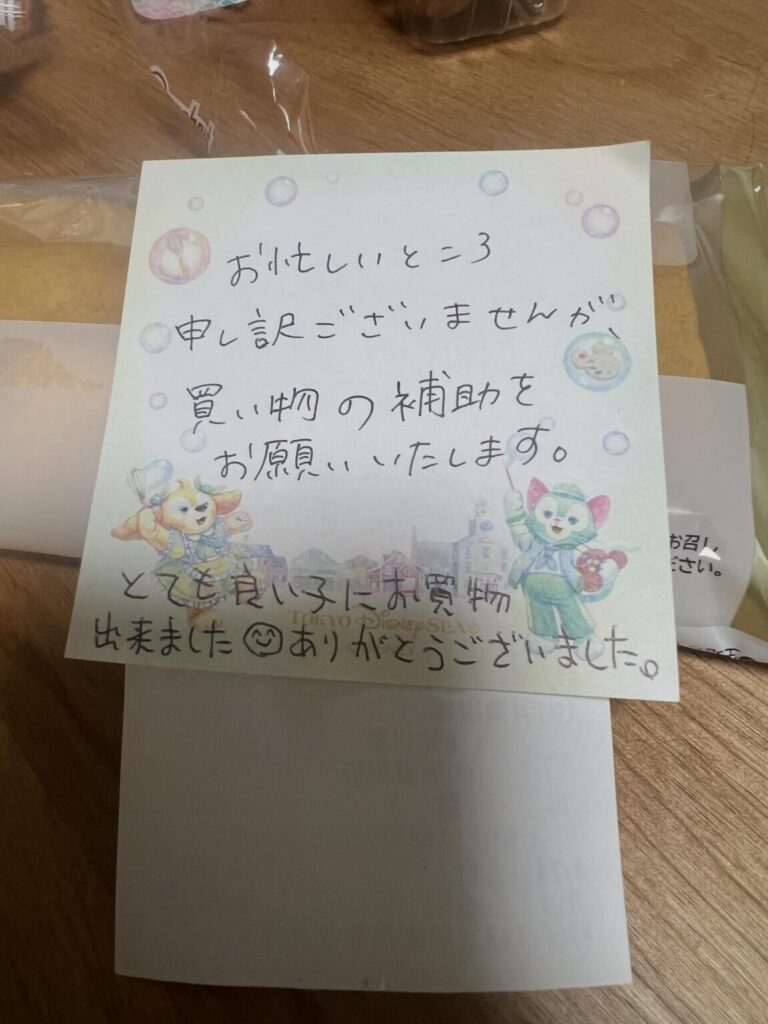 お忙しいところ
申し訳ございませんが、
買い物の補助を
お願いいたします。
とても良い子にお買物
TOKYO DISNEYSEA
出来ました😊ありがとうございました。
お召し
ださい。